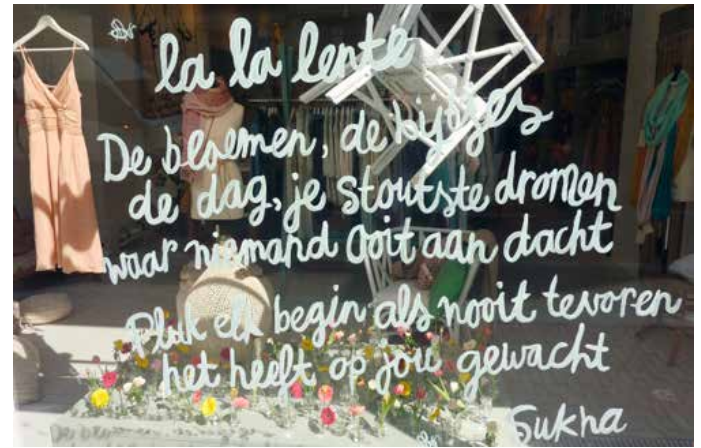 la la lente
De bloemen, de bijtjes
de dag, je stoutste dromen
waar niemand ooit aan dacht
Pluk elk begin als nooit tevoren
het heeft op jou gewacht
Sukha